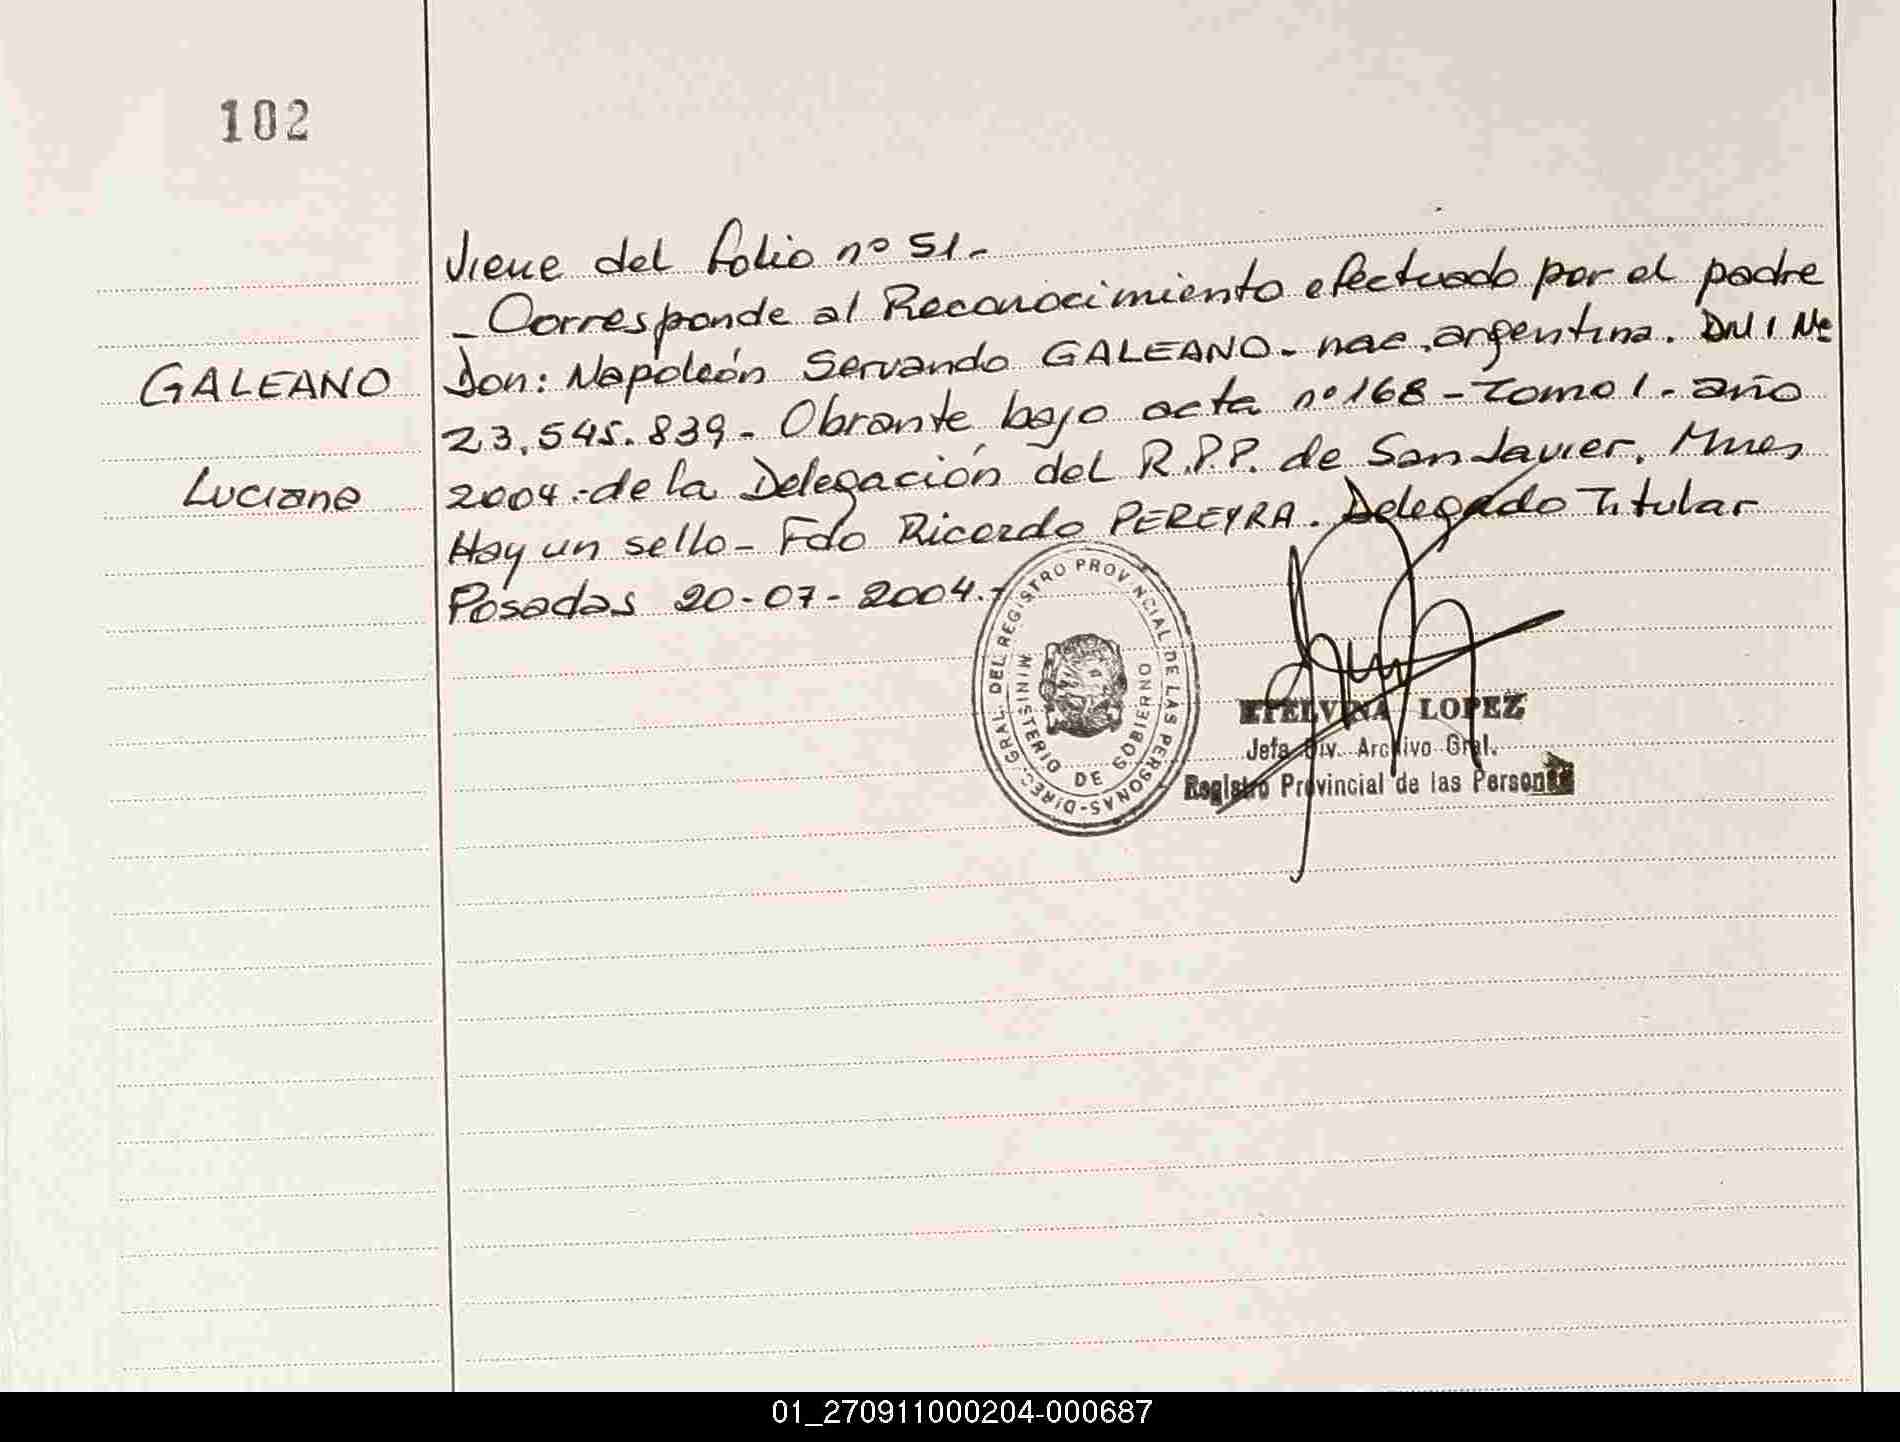 102
Viene del folio nº 51.-
- Corresponde al Reconocimiento efectuado por el padre
GALEANO
Don: Napoleón Servando GALEANO - nac. argentina. DNI Nº
23.545.839 - Obrante bajo acta nº 168 - Tomo 1. - año
Luciano
2004.- de la Delegación del R.P.P. de San Javier, Mnes
Hay un sello - Fdo Ricardo PEREYRA. Delegado Titular
Posadas 20-07-2004.-
DIREC. GRAL. DEL REGISTRO PROVINCIAL DE LAS PERSONAS-
MINISTERIO DE GOBIERNO
ETELVINA LOPEZ
Jefa Div. Archivo Gral.
Registro Provincial de las Personas
01_270911000204-000687